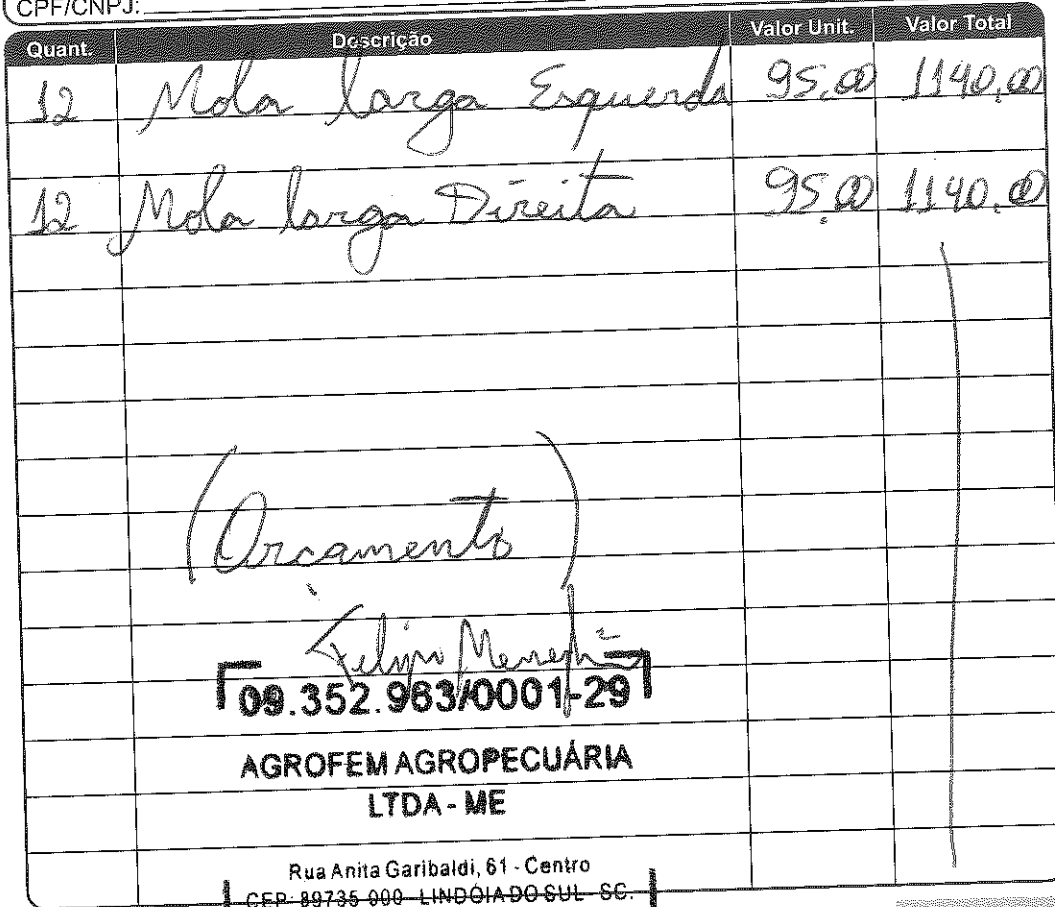 CPF/CNPJ:
Quant. Descrição Valor Unit. Valor Total
12 Mola larga Esquerda 95,00 1140,00
12 Mola larga Direita 95,00 1140,00
(Orçamento)
Felipe
09.352.983/0001-29
AGROFEM AGROPECUÁRIA
LTDA - ME
Rua Anita Garibaldi, 61 - Centro
CEP: 89735-000 - LINDÓIA DO SUL - SC.